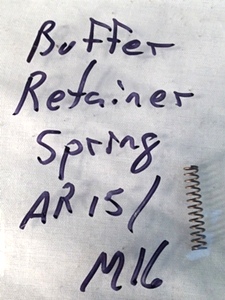 Buffer
Retainer
Spring
AR15/
M16